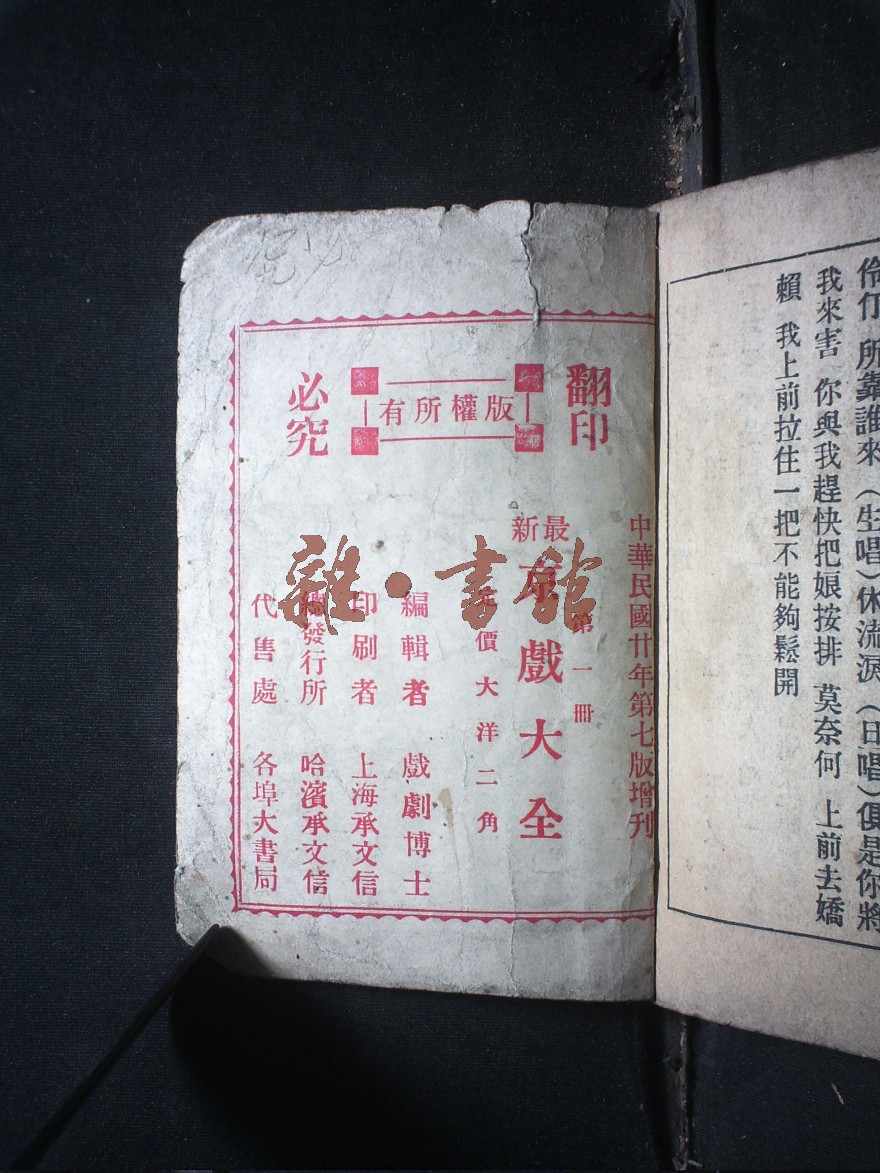 伶仃 所靠誰來（生唱）休流淚（旦唱）俱是你將
我來害 你與我趕快把娘按排 莫奈何 上前去嬌
賴 我上前拉住一把不能夠鬆開
翻印
版權所有
必究
中華民國廿年第七版增刊
第一冊
最新
京戲大全
價大洋二角
編輯者 戲劇博士
印刷者 上海承文信
總發行所 哈濱承文信
代售處 各埠大書局
雜·書館